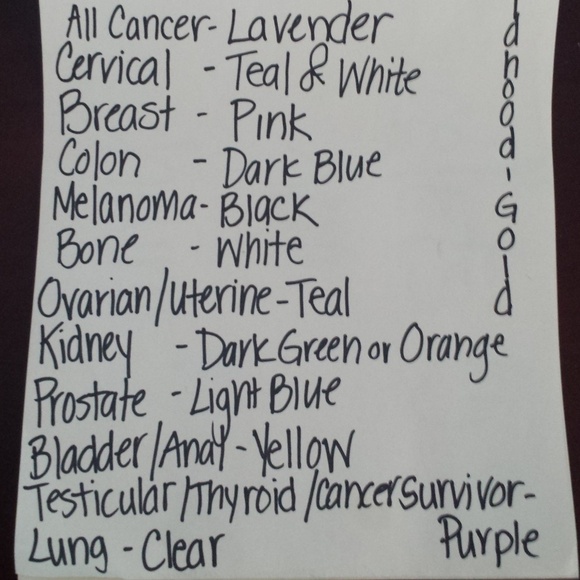 All Cancer- Lavender
Cervical - Teal & White
Breast - Pink
Colon - Dark Blue
Melanoma- Black
Bone - White
Ovarian/Uterine-Teal
Kidney - Dark Green or Orange
Prostate - Light Blue
Bladder/Anal - Yellow
Testicular/Thyroid/Cancer Survivor-
Purple
Lung - Clear
dhood-Gold